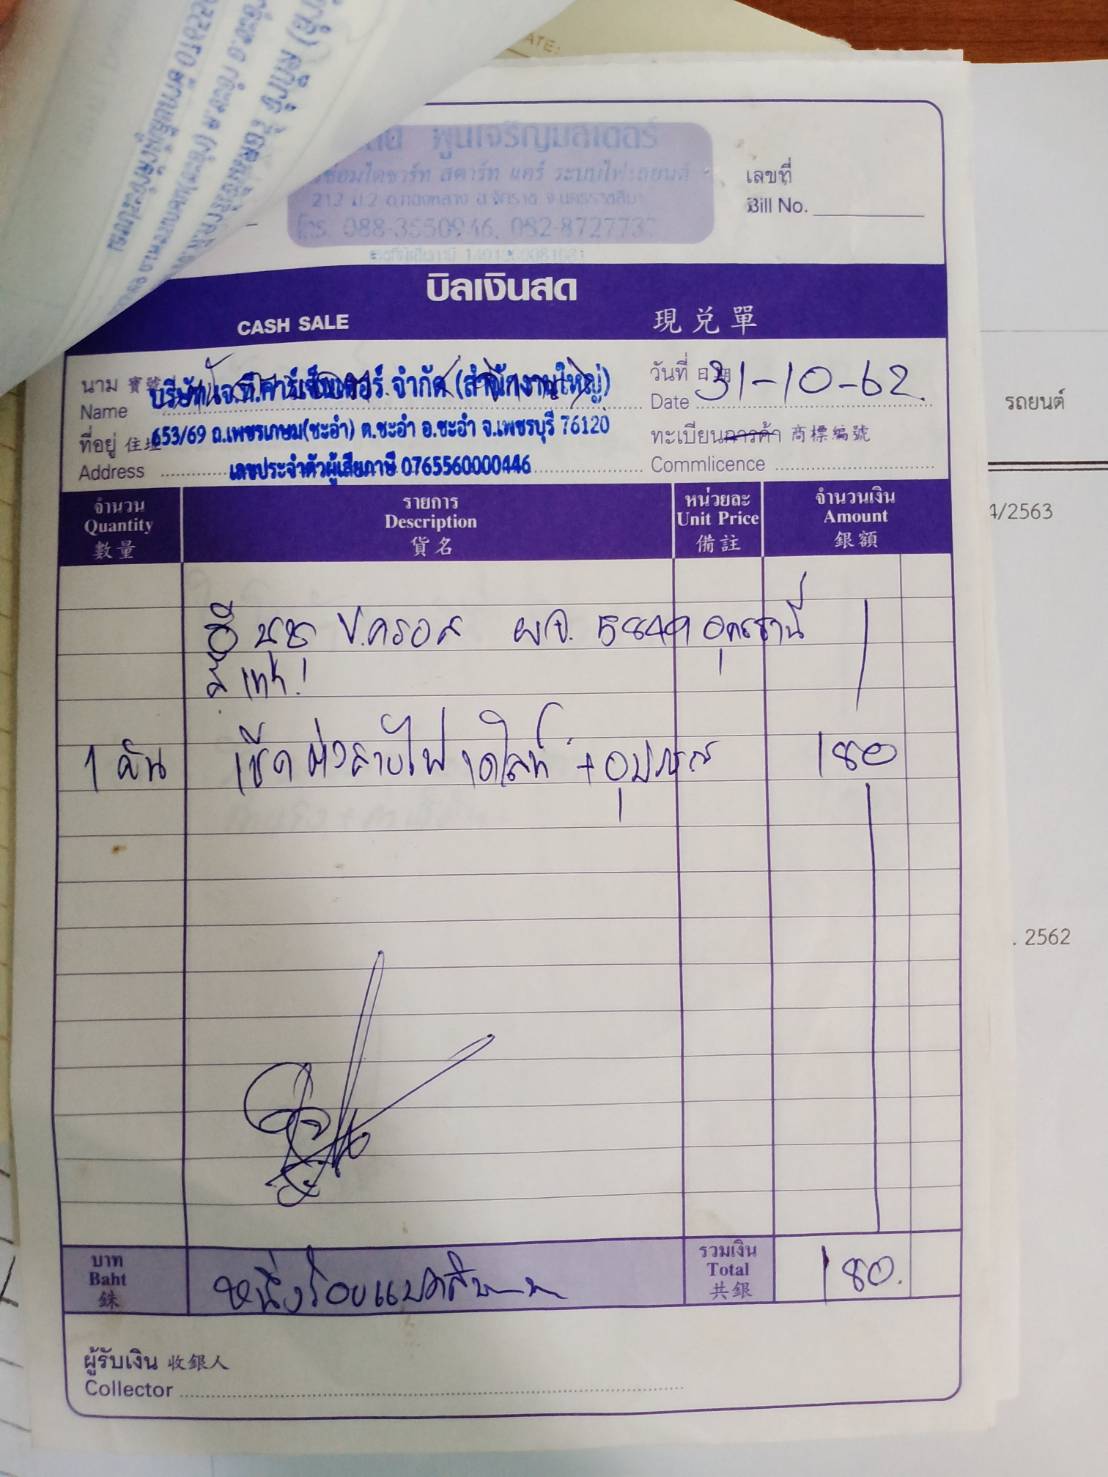 พูนเจริญมอเตอร์
ซ่อมไดชาร์ท สตาร์ท แอร์ ระบบไฟรถยนต์
212 ม.2
โทร. 088-3550946, 082-872773
เลขที่
Bill No.
บิลเงินสด
CASH SALE 現兌單
นาม 寶號 บริษัท เจ.ที.คาร์เซ็นเตอร์ จำกัด (สำนักงานใหญ่)
Name
วันที่ 日期 31-10-62.
Date
ที่อยู่ 住址 653/69 ถ.เพชรเกษม(ชะอำ) ต.ชะอำ อ.ชะอำ จ.เพชรบุรี 76120
Address เลขประจำตัวผู้เสียภาษี 0765560000446
ทะเบียนการค้า 商標編號
Commlicence
จำนวน รายการ หน่วยละ จำนวนเงิน
Quantity Description Unit Price Amount
數量 貨名 備註 銀額
V.ครอส ผจ. 5849 อุดรธานี
สีเทา
1 คัน เช็ค ต่อสายไฟ เดไลท์ + อุปกรณ์ 180
บาท
Baht
銖
หนึ่งร้อยแปดสิบบาท
รวมเงิน
Total
共銀
180.
ผู้รับเงิน 收銀人
Collector
รถยนต์
4/2563
. 2562